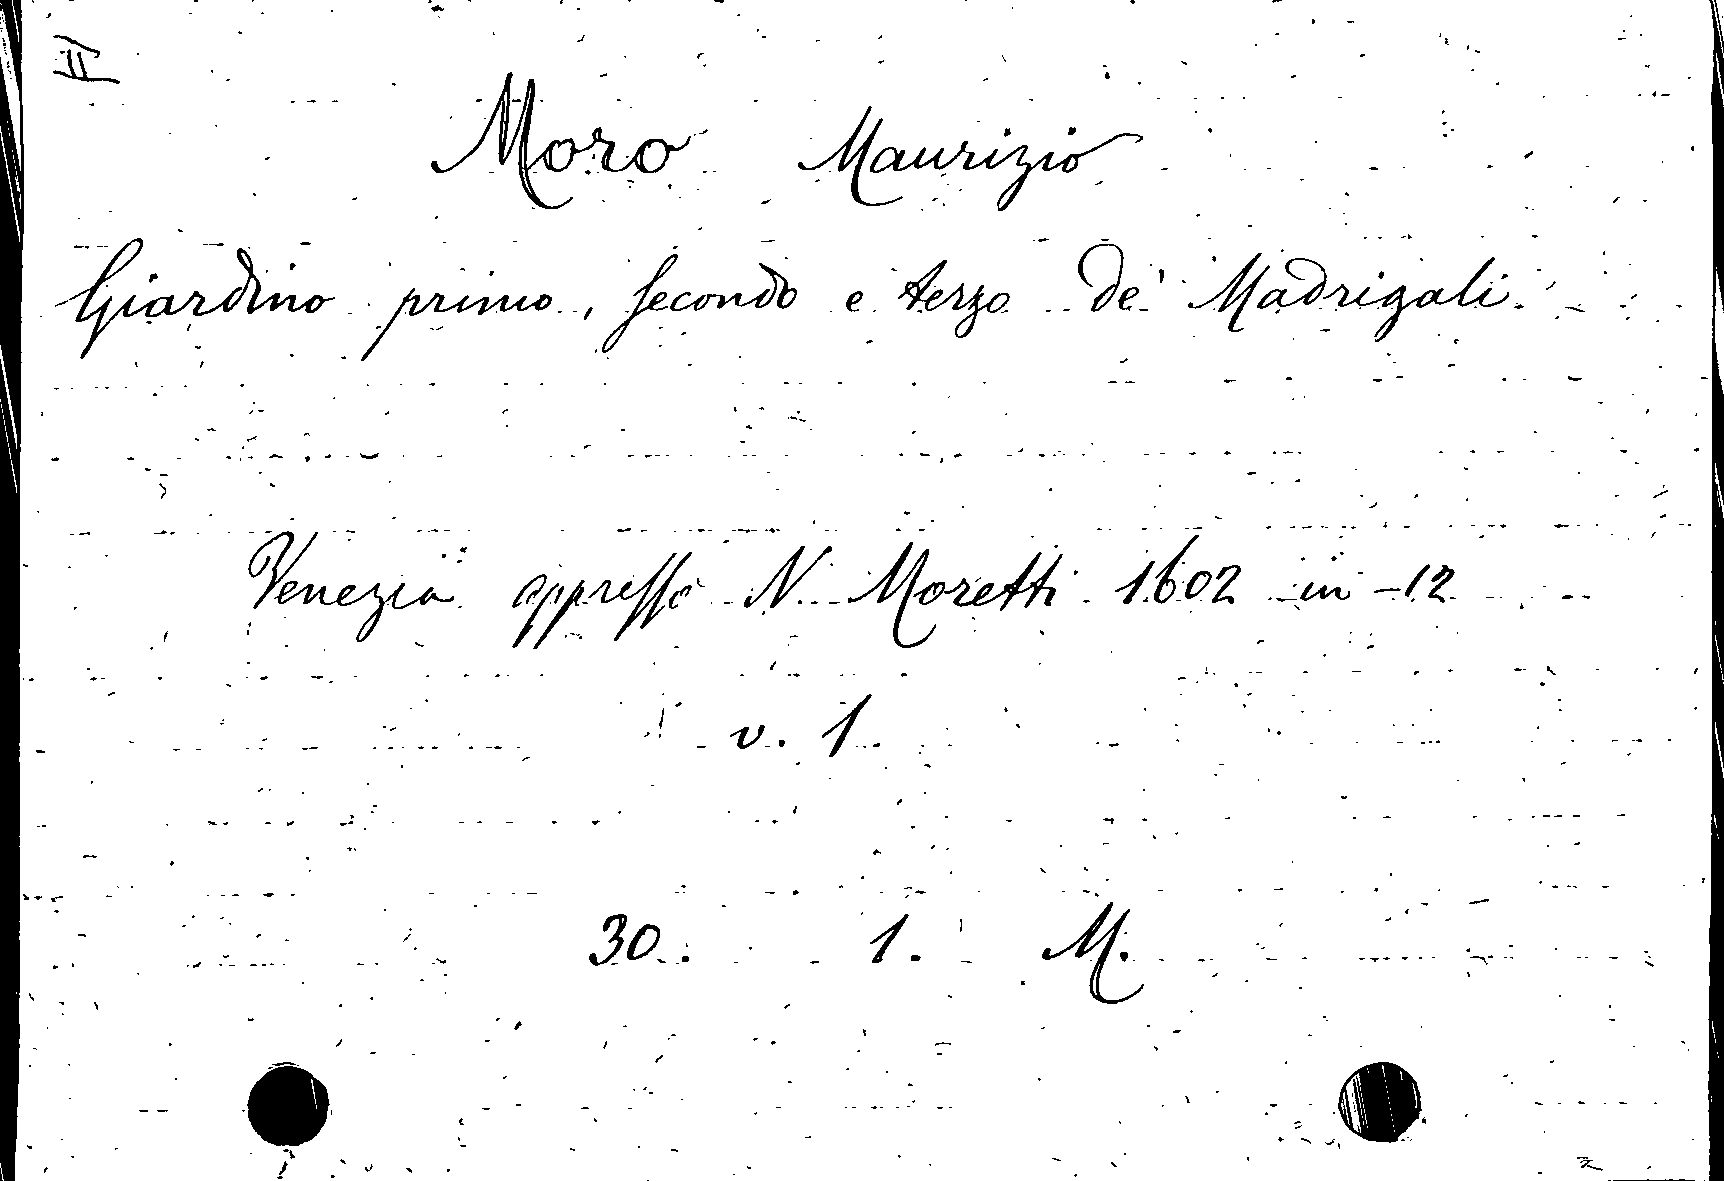 Moro Maurizio
Giardino primo, secondo e terzo de' Madrigali.
Venezia appresso N. Moretti 1602 in-12
v. 1
30. 1. M.